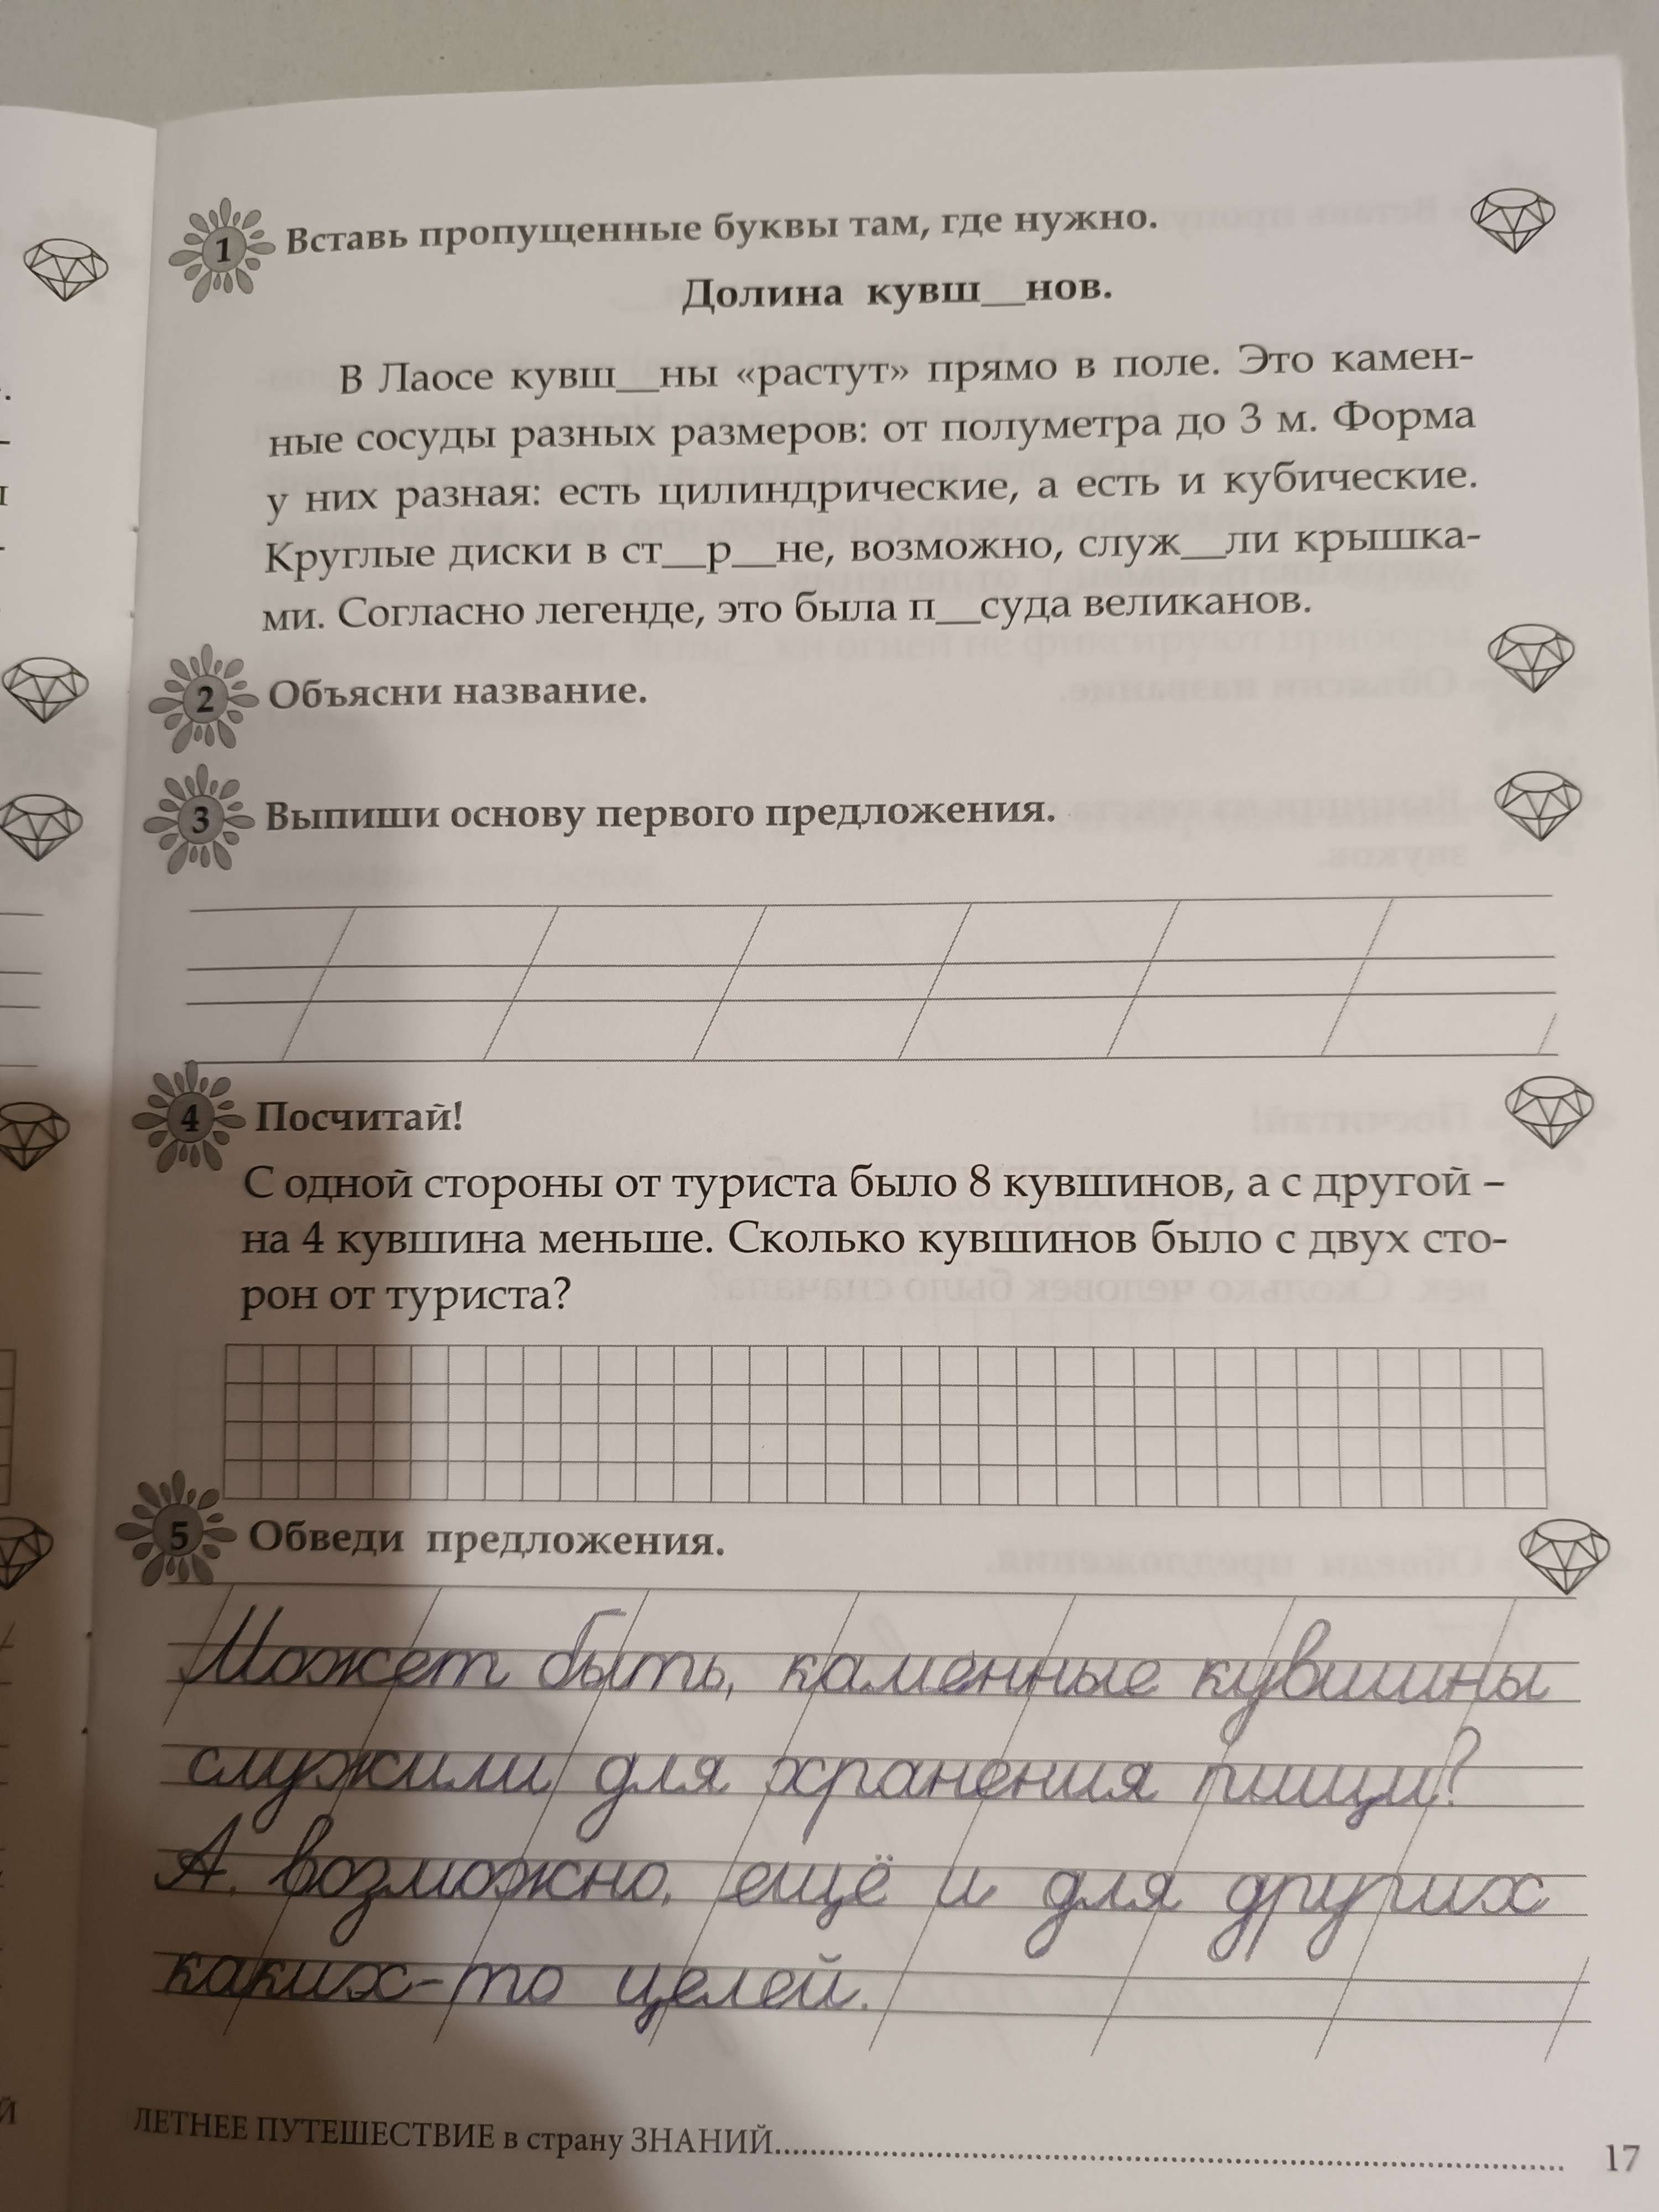 1 Вставь пропущенные буквы там, где нужно.
Долина кувш__нов.
В Лаосе кувш__ны «растут» прямо в поле. Это камен-
ные сосуды разных размеров: от полуметра до 3 м. Форма
у них разная: есть цилиндрические, а есть и кубические.
Круглые диски в ст__р__не, возможно, служ__ли крышка-
ми. Согласно легенде, это была п__суда великанов.
2 Объясни название.
3 Выпиши основу первого предложения.
4 Посчитай!
С одной стороны от туриста было 8 кувшинов, а с другой –
на 4 кувшина меньше. Сколько кувшинов было с двух сто-
рон от туриста?
5 Обведи предложения.
Может быть, каменные кувшины
служили для хранения пищи?
А, возможно, ещё и для других
каких-то целей.
ЛЕТНЕЕ ПУТЕШЕСТВИЕ в страну ЗНАНИЙ
17